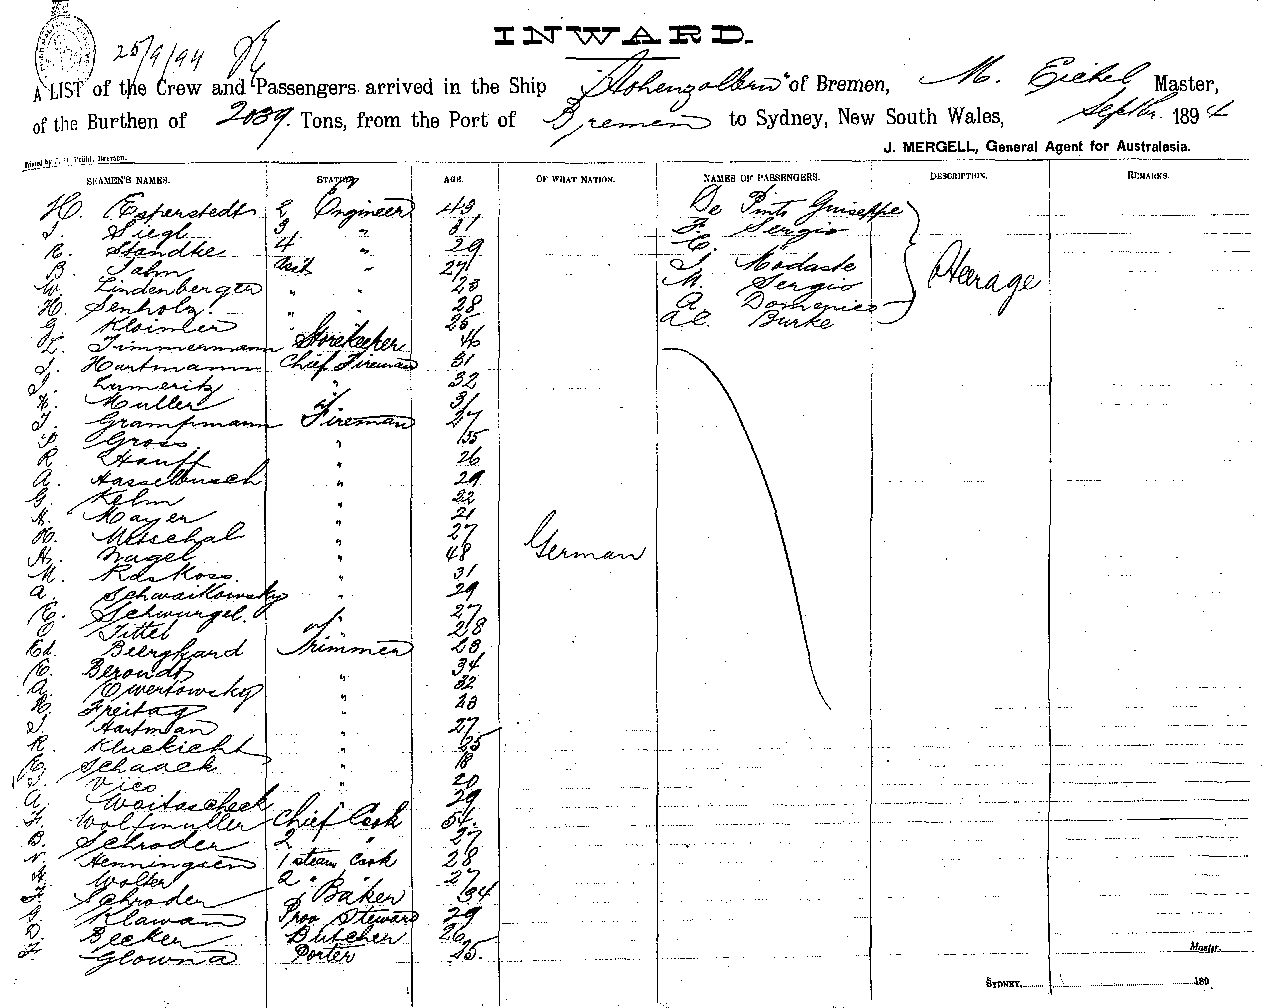 INWARD.
25/9/94
A LIST of the Crew and Passengers arrived in the Ship "Hohenzollern" of Bremen, M. Eichel Master,
of the Burthen of 2039. Tons, from the Port of Bremen to Sydney, New South Wales, Septbr. 1894
J. MERGELL, General Agent for Australasia.
SEAMEN'S NAMES. STATION AGE. OF WHAT NATION. NAMES OF PASSENGERS. DESCRIPTION. REMARKS.
H. Esperstedt 2 Engineer 43 De Pinto Guiseppe
Siegl 3 " 31 F. Sergio
R. Standke 4 " 29 C.
B. Jahn Asst " 27 J. Modaste
W. Lindenberger " " 23 M. Sergio
H. Senholz " " 28 A. Domenico
G. Kloimer " " 25 Burke
Steerage
L. Timmermann Storekeeper 46
J. Hartmann Chief Fireman 31
J. Lumeritz " 32
H. Muller " 31
J. Grampmann Fireman 27
Gross "
R. Hauff " 26
A. Hasselbusch " 29
G. Kelm " 22
Mayer " 21
H. "  27
H. Nagel " 48
M. Raskoss " 31
A. Schwaikowsky " 29
E. Schwurgel " 27
O. Tittel " 28
Ed. Beerghard Trimmer 23
E. Berondt " 34
A. Owertowsky " 22
H. Freitag " 23
J. Hartman " 27
R. Kluckicht " 25
Schaack " 18
Vico " 20
A. Woitascheck " 29
Wolfmuller Chief Cook
B. Schroder 2 " 27
Henningsen 1 steam Cook 28
Wolter 2 " " 27
Schroder Baker 34
Klawan Prov Steward 29
Becker Butcher 26
Glowna Porter 25.
German
Master.
SYDNEY, 189